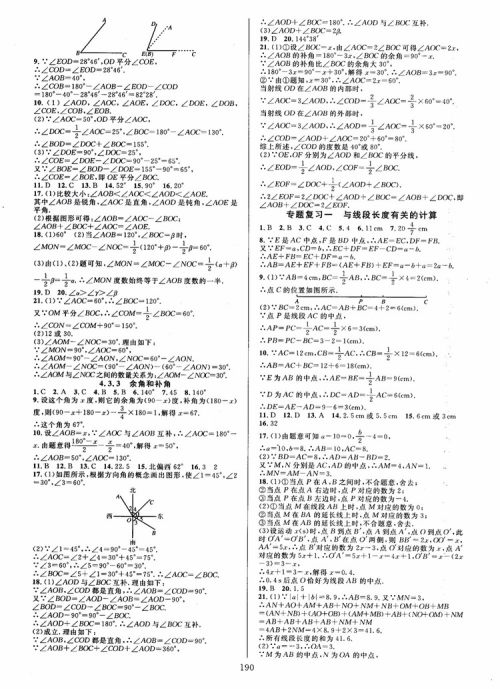 A
B
C
E
B
D
F
C
9.∵∠EOD=28°46′,OD平分∠COE,
∴∠COD=∠EOD=28°46′.
∵∠AOB=40°,
∴∠COB=180°-∠AOB-∠EOD-∠COD
=180°-40°-28°46′-28°46′=82°28′.
10.(1)∠AOD,∠AOC,∠AOE,∠DOC,∠DOE,∠DOB,
∠COE,∠COB,∠EOB.
(2)∵∠AOC=50°,OD平分∠AOC,
∴∠DOC=1/2∠AOC=25°,∠BOC=180°-∠AOC=130°.
∴∠BOD=∠DOC+∠BOC=155°.
(3)∵∠DOE=90°,∠DOC=25°,
∴∠COE=∠DOE-∠DOC=90°-25°=65°.
又∵∠BOE=∠BOD-∠DOE=155°-90°=65°,
∴∠COE=∠BOE,即OE平分∠BOC.
11.D 12.C 13.B 14.52° 15.90° 16.20°
17.(1)比较大小,∠AOB<∠AOC<∠AOD<∠AOE.
其中∠AOB是锐角,∠AOC是直角,∠AOD是钝角,∠AOE是
平角.
(2)根据图形可得:∠AOB=∠AOC-∠BOC;
∠AOB+∠BOC+∠AOC=∠AOE.
18.(1)60° (2)当∠AOB=120°,∠BOC=β时,
∠MON=∠MOC-∠NOC=1/2(120°+β)-1/2β=60°.
(3)由(1),(2)题可知,∠MON=∠MOC-∠NOC=1/2(α+β)
-1/2β=1/2α.∴∠MON度数始终等于∠AOB度数的一半.
19.D 20.∠α>∠γ>∠β
21.(1)∵∠AOC=60°,∴∠BOC=120°.
又∵OM平分∠BOC,∴∠COM=1/2∠BOC=60°.
∴∠CON=∠COM+90°=150°.
(2)12或30.
(3)∠AOM-∠NOC=30°.理由如下:
∵∠MON=90°,∠AOC=60°,
∴∠AOM=90°-∠AON,∠NOC=60°-∠AON.
∴∠AOM-∠NOC=(90°-∠AON)-(60°-∠AON)=30°.
∴∠AOM与∠NOC之间的数量关系为:∠AOM-∠NOC=30°.
4.3.3 余角和补角
1.C 2.A 3.C 4.B 5.B 6.140° 7.45 8.140°
9.设这个角为x度,则它的余角为(90-x)度,补角为(180-x)
度,则(90-x+180-x)-3/4×180=1,解得x=67.
∴这个角为67°.
10.设∠AOB=x.∵∠AOC与∠AOB互补,∴∠AOC=180°-
x.由题意得(180°-x)/2-x/2=40°,解得x=50°.
∴∠AOB=50°,∠AOC=130°.
11.B 12.B 13.C 14.22.5 15.北偏西62° 16.3 2
17.(1)如图所示,根据方向角的概念画出图形,使∠1=45°,∠2
=30°,∠3=60°.
北
西
东
南
(2)∵∠1=45°,∴∠4=90°-45°=45°.
∴∠AOC=∠2+∠4=30°+45°=75°.
∵∠3=60°,∴∠5=90°-60°=30°.
∴∠BOC=∠5+∠1=30°+45°=75°.∴∠AOC=∠BOC.
18.(1)∠AOD与∠BOC互补.理由如下:
∵∠AOB,∠COD都是直角,∴∠AOB=∠COD=90°.
又∵∠BOD=∠AOD-∠AOB=∠AOD-90°,
∠BOD=∠COD-∠BOC=90°-∠BOC,
∴∠AOD-90°=90°-∠BOC.
∴∠AOD+∠BOC=180°.∴∠AOD与∠BOC互补.
(2)成立.理由如下:
∵∠AOB,∠COD都是直角,∴∠AOB=∠COD=90°.
∵∠AOB+∠BOC+∠COD+∠AOD=360°,
∴∠AOD+∠BOC=180°.∴∠AOD与∠BOC互补.
(3)∠AOD+∠BOC=2β.
19.D 20.144°38′
21.(1)①设∠BOC=x,由∠AOC=2∠BOC可得∠AOC=2x,
∴∠AOB的补角=180°-3x,∠BOC的余角=90°-x.
∵∠AOB的补角比∠BOC的余角大30°,
∴180°-3x=90°-x+30°,解得x=30°.∴∠AOB=3x=90°.
②∵由①题知,x=30°,∴∠AOC=2x=60°.
当射线OD在∠AOB的内部时,
∵∠AOC=3∠AOD,∴∠COD=2/3∠AOC=2/3×60°=40°.
当射线OD在∠AOB的外部时,
∵∠AOC=3∠AOD,∴∠AOD=1/3∠AOC=1/3×60°=20°.
∴∠COD=∠AOD+∠AOC=20°+60°=80°.
综上所述,∠COD的度数是40°或80°.
(2)∵OE,OF分别为∠AOD和∠BOC的平分线,
∴∠EOD=1/2∠AOD,∠COF=1/2∠BOC.
∴∠EOF=∠DOC+1/2(∠AOD+∠BOC).
∴2∠EOF=2∠DOC+∠AOD+∠BOC=∠AOB+∠DOC,即
∠AOB+∠DOC=2∠EOF.
专题复习一 与线段长度有关的计算
1.B 2.B 3.C 4.C 5.4 6.11cm 7.20 1/2 cm
8.∵E是AC中点,F是BD中点,∴AE=EC,DF=FB.
又∵EF=a,CD=b,∴EC+DF=EF-CD=a-b.
∴AE+FB=EC+DF=a-b.
∴AB=AE+EF+FB=(AE+FB)+EF=a-b+a=2a-b.
9.(1)∵AB=4cm,BC=1/2AB,∴BC=1/2×4=2(cm).
∴点C的位置如图所示.
A P B C
(2)∵BC=2cm,∴AC=AB+BC=4+2=6(cm).
∵点P是线段AC的中点,
∴AP=PC=1/2AC=1/2×6=3(cm).
∴PB=PC-BC=3-2=1(cm).
10.∵AC=12cm,CB=1/2AC,∴CB=1/2×12=6(cm).
∴AB=AC+BC=12+6=18(cm).
∵E为AB的中点,∴AE=BE=1/2AB=9(cm).
∵D为AC的中点,∴DC=AD=1/2AC=6(cm).
∴DE=AE-AD=9-6=3(cm).
11.D 12.D 13.A 14.2.5cm或5.5cm 15.6cm或3cm
16.32
17.(1)由题意可知a-10=0,b/2-4=0,
∴a=10,b=8.∴AB=10,AC=8.
(2)∵BD=AC=8,∴AD=AB-BD=2.
又∵M,N分别是AC,AD的中点,∴AM=4,AN=1.
∴MN=AM-AN=3.
18.(1)①当点P在A,B之间时,不合题意,舍去;
②当点P在点A右边时,点P对应的数为2;
③当点P在点B左边时,点P对应的数为-4.
(2)①当点M在线段AB上时,点M对应的数为0;
②当点M在BA的延长线上时,点M对应的数为3;
③当点M在AB的延长线上时,不合题意,舍去.
(3)设运动x(s)时,点B到点B′,点A到点A′,点O到点O′,此
时O′A′=O′B′,点A′,B′在点O′两侧,则BB′=2x,OO′=x,
AA′=5x.∴点B′对应的数为2x-3,点O′对应的数为x,点A′
对应的数为5x+1.∴O′A′=5x+1-x=4x+1,O′B′=x-(2x
-3)=3-x.
∴4x+1=3-x,解得x=0.4.
∴0.4s后点O恰好为线段AB的中点.
19.B 20.1.5
21.(1)∵|a|+|b|=8.9,∴AB=8.9.又∵MN=3,
∴AN+AO+AM+AB+NO+NM+NB+OM+OB+MB
=(AN+NB)+(AO+OB)+(AM+MB)+AB+(NO+OM)+NM
=AB+AB+AB+AB+NM+NM
=4AB+2NM=4×8.9+2×3=41.6.
∴所有线段长度的和为41.6.
(2)∵a=-3,∴OA=3.
∵M为AB的中点,N为OA的中点,
190